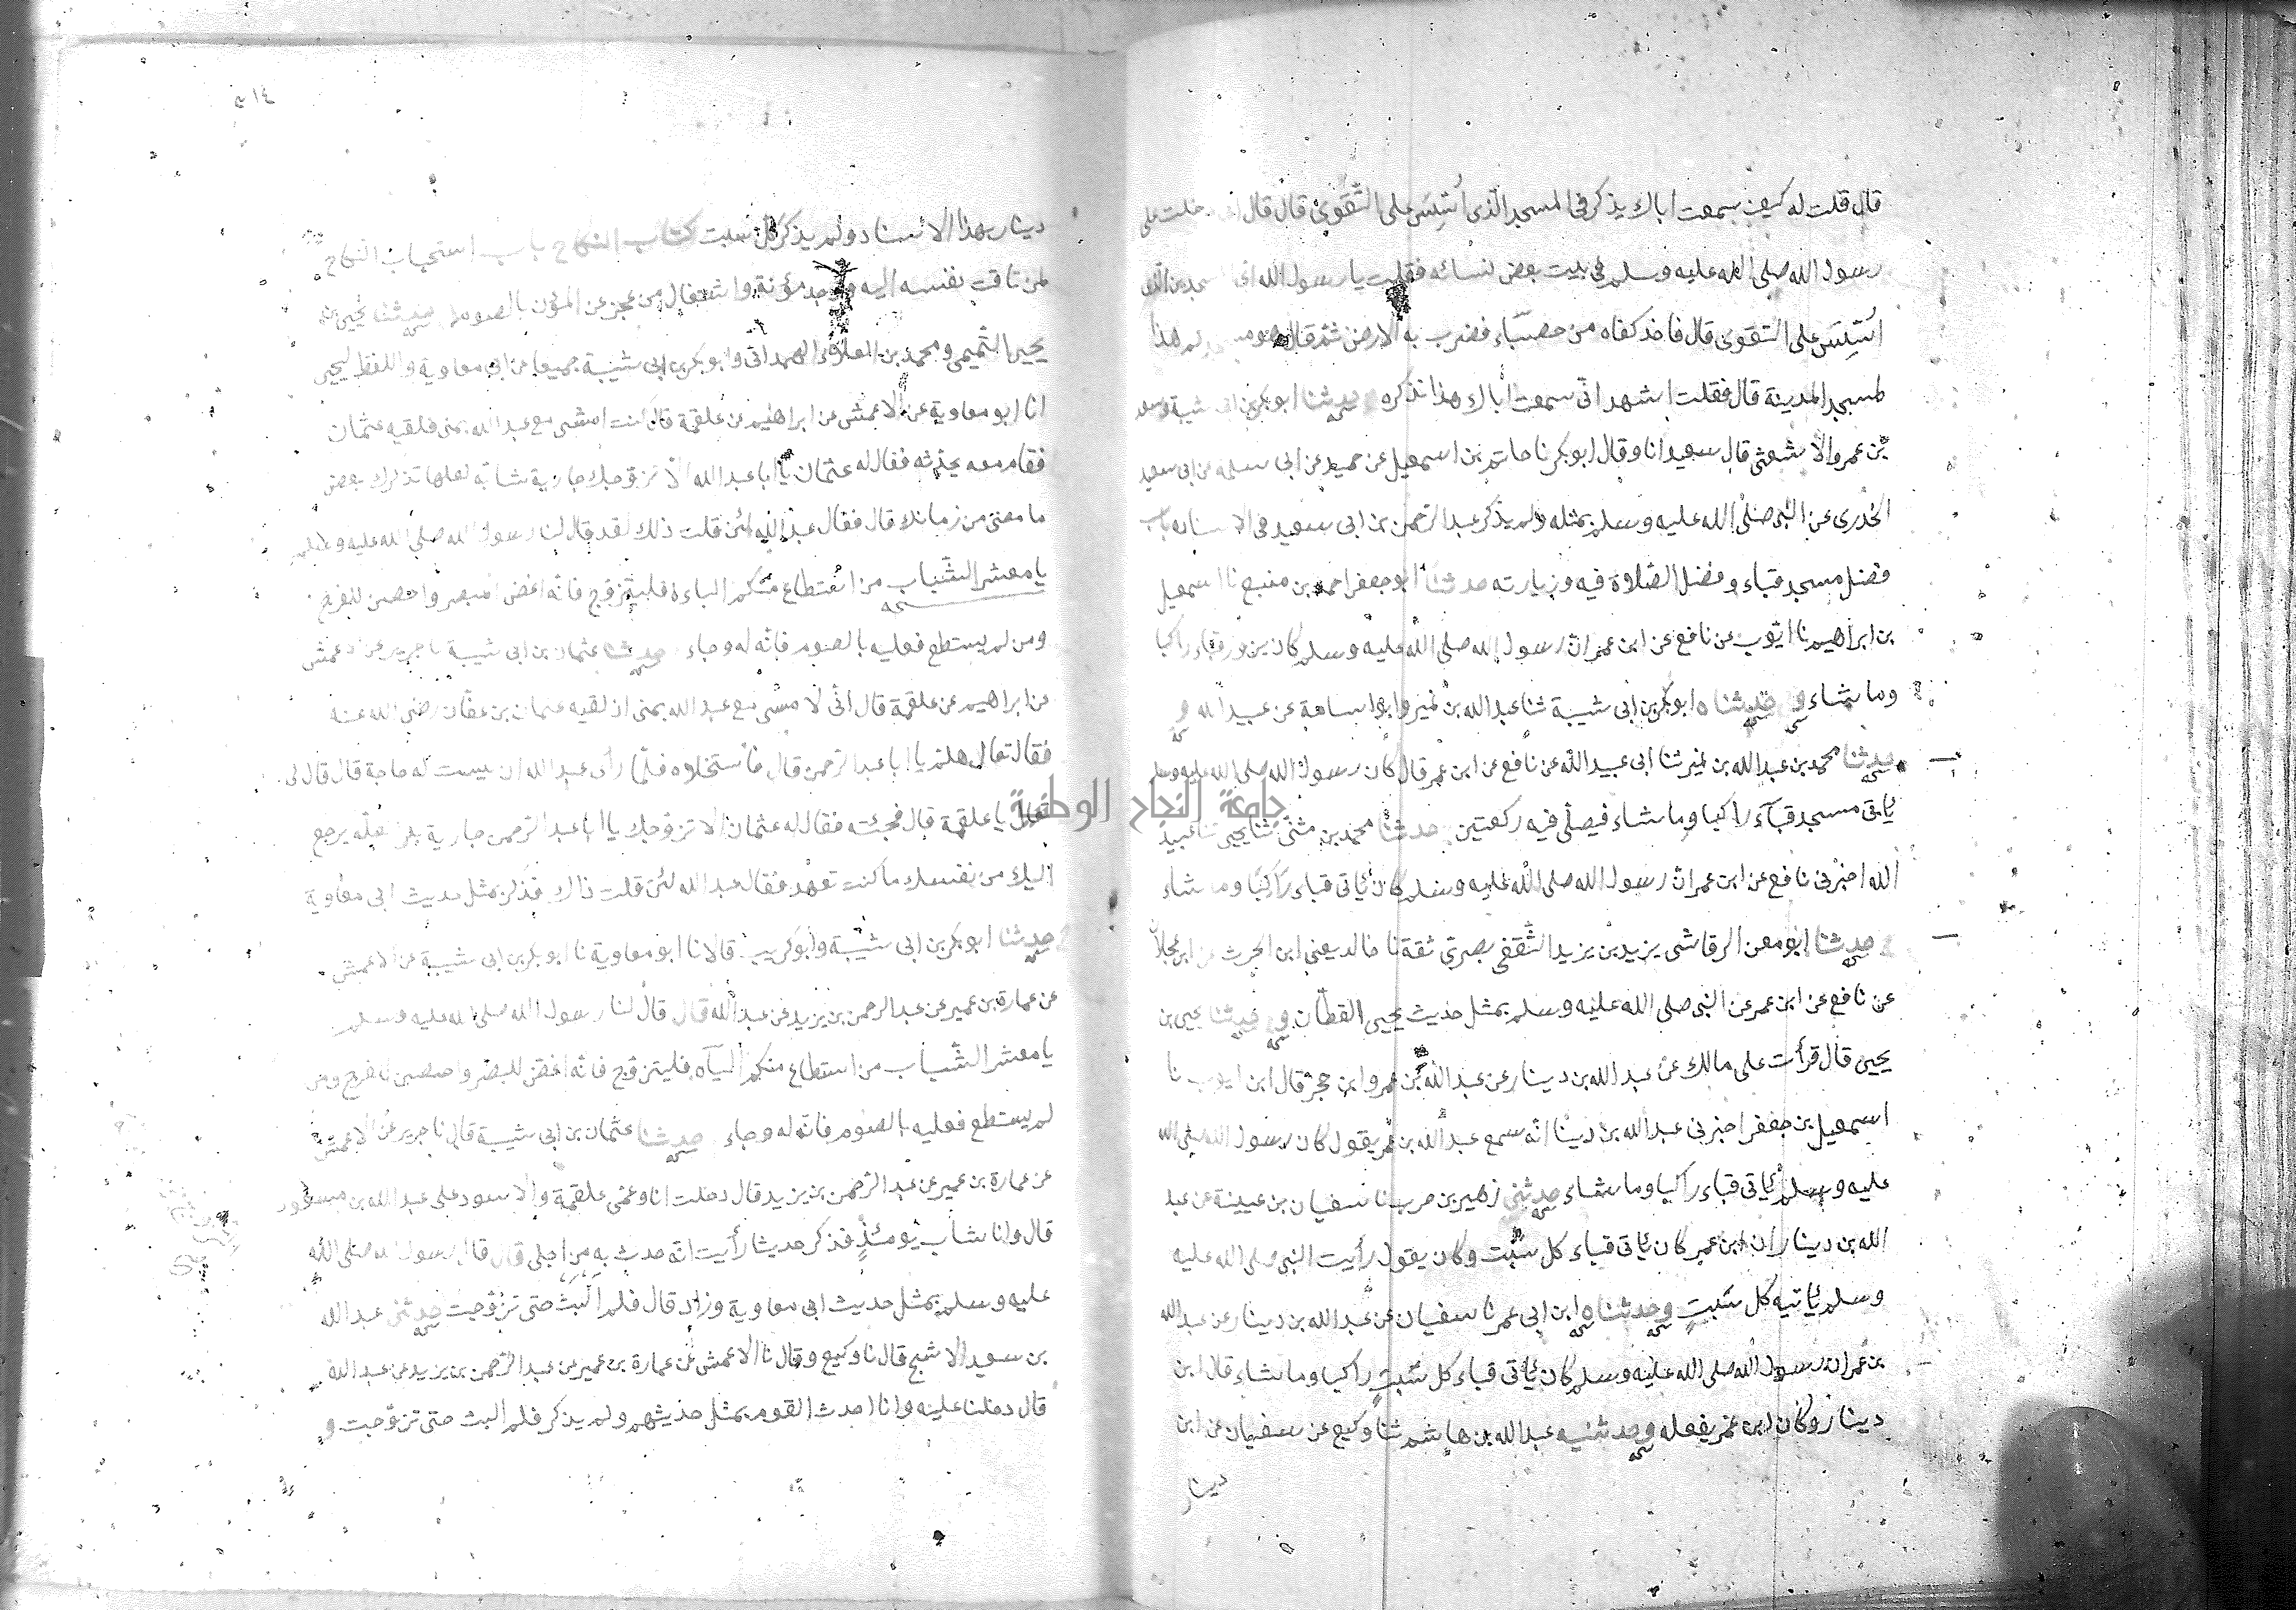 قال قلت له كيف سمعت اباك يذكر فى المسجد الذى اُسِّسَ على التَّقوىٰ قال قال ابى دخلت على
رسول الله صلى الله عليه وسلم فى بيت بعض نسائه فقلت يا رسول الله اى المسجدين الذى
اُسِّسَ على التقوى قال فاخذ كفاه من حصبّاء فضرب به الارض ثم قال هو مسجدكم هذا
لمسجد المدينة قال فقلت اشهد انّى سمعت أباك هذا تذكره حدثنا ابوبكر بن ابى شيبة وسعيد
بن عمرو الاشعثى قال سعيد انا وقال ابوبكر نا حاتم بن اسمعيل عن حميد عن ابى سلمة عن ابى سعيد
الخُدرى عن النّبى صلى الله عليه وسلم بمثله ولم يذكر عبد الرحمن بن ابى سعيد فى الاسناد باب
فضل مسجد قباء وفضل الصّلاة فيه وزيارته حدثنا ابو جعفر احمد بن منيع نا اسمعيل
بن ابراهيم نا ايّوب عن نافع عن ابن عمر انّ رسول الله صلى الله عليه وسلم كان يزور قباء راكبا
وماشاء و حدثناه ابوبكر بن ابى شيبة ثنا عبد الله بن نمير وابو اسامة عن عبيد الله و
حدثنا محمد بن عبد الله بن نمير ثنا ابى عبيد الله عن نافع عن ابن عمر قال كان رسول الله صلى الله عليه وسلم
يأتى مسجد قبآء راكبا وماشاء فيصلّى فيه ركعتين حدثنا محمد بن مثنى ثنا يحيى ثنا عبيد
الله اخبرنى نافع عن ابن عمر انّ رسول الله صلى الله عليه وسلم كان يأتى قباء راكبًا وماشاء
حدثنا ابو معن الرقاشى يزيد بن يزيد الثّقفى بصرىّ ثقة نا خالد يعنى ابن الحرث عن ابن عجلان
عن نافع عن ابن عمر عن النبى صلى الله عليه وسلم بمثل حديث يحيى القطّان و حدثنا يحيى بن
يحيى قال قرأت على مالك عن عبد الله بن دينار عن عبد الله بن عمر وابن حجر قال ابن ايوب نا
اسمعيل بن جعفر اخبرنى عبد الله بن دينا انّه سمع عبد الله بن عمر يقول كان رسول الله صلى الله
عليه وسلم يأتى قباء راكبا وماشاء حدثنى زهير بن حرب نا سفيان بن عيينة عن عبد
الله بن دينار ان ابن عمر كان يأتى قباء كل سَبْت وكان يقول رأيت النبى صلى الله عليه
وسلم يأتيه كل سَبتٍ وحدثناه ابن ابى عمر نا سفيان عن عبد الله بن دينار عن عبد الله
بن عمر ان رسول الله صلى الله عليه وسلم كان يأتى قباء كل سَبتٍ راكبا وماشاء قال ابن
دينار وكان ابن عمر يفعله وحدثنيه عبد الله بن هاشم ثنا وكيع عن سفيان عن ابن
دينار
دينار بهذا الاسناد ولم يذكر كل سبت كتاب النكاح باب استحباب النكاح
لمن تاقت نفسه اليه ووجد مؤنة واشتغال من عجز عن المؤن بالصوم حدثنا يحيى بن
يحيى التّميمى ومحمد بن العلاء الهمدانى وابوبكر بن ابى شيبة جميعا عن ابى معاوية واللفظ ليحيى
انا ابو معاوية عن الاعمش عن ابراهيم عن علقمة قال كنت امشى مع عبد الله بمنى فلقيه عثمان
فقام معه يحدّثه فقال له عثمان يا ابا عبد الله الا نزوّجك جارية شابّة لعلها تذكرك بعض
ما مضى من زمانك قال فقال عبد الله لئن قلت ذلك لقد قال لنا رسول الله صلى الله عليه وسلم
يا معشر الشّباب من استطاع منكم الباءة فليتزوّج فانّه اغض للبصر واحصن للفرج
ومن لم يستطع فعليه بالصوم فانّه له وجاء حدثنا عثمان بن ابى شيبة نا جرير عن الاعمش
عن ابراهيم عن علقمة قال انّى لامشى مع عبد الله بمنى اذ لقيه عثمان بن عفّان رضى الله عنه
فقال تعال هلم يا ابا عبد الرّحمن قال فاستخلاه فلمّا رأى عبد الله ان ليست له حاجة قال قال لى
تعال يا علقمة قال فجئته فقال له عثمان الا نزوّجك يا ابا عبد الرّحمن جارية بكرا لعلّه يرجع
اليك من نفسك ما كنت تعهد فقال عبد الله لئن قلت ذاك فذكر بمثل حديث ابى معاوية
حدثنا ابوبكر بن ابى شيبة وابو كريب قالا نا ابو معاوية نا ابوبكر بن ابى شيبة عن الاعمش
عن عمارة بن عمير عن عبد الرحمن بن يزيد عن عبد الله قال قال لنا رسول الله صلى الله عليه وسلم
يا معشر الشّباب من استطاع منكم البآه فليتزوّج فانّه اغض للبصر واحصن للفرج ومن
لم يستطع فعليه بالصوم فانّه له وجاء حدثنا عثمان بن ابى شيبة قال نا جرير عن الاعمش
عن عمارة بن عمير عن عبد الرّحمن بن يزيد قال دخلت انا وعمّى علقمة والاسود على عبد الله بن مسعود
قال وانا شاب يومئذٍ فذكر حديثا رأيت انّه حدث به من اجلى قال قال رسول الله صلى الله
عليه وسلم بمثل حديث ابى معاوية وزاد قال فلم اَلبَث حتى تزوّجت حدثنى عبد الله
بن سعيد الاشج قال نا وكيع وقال نا الاعمش عن عمارة بن عمير عن عبد الرّحمن بن يزيد عن عبد الله
قال دخلنا عليه وانا احدث القوم بمثل حديثهم ولم يذكر فلم البث حتى تزوّجت و
جامعة النجاح الوطنية